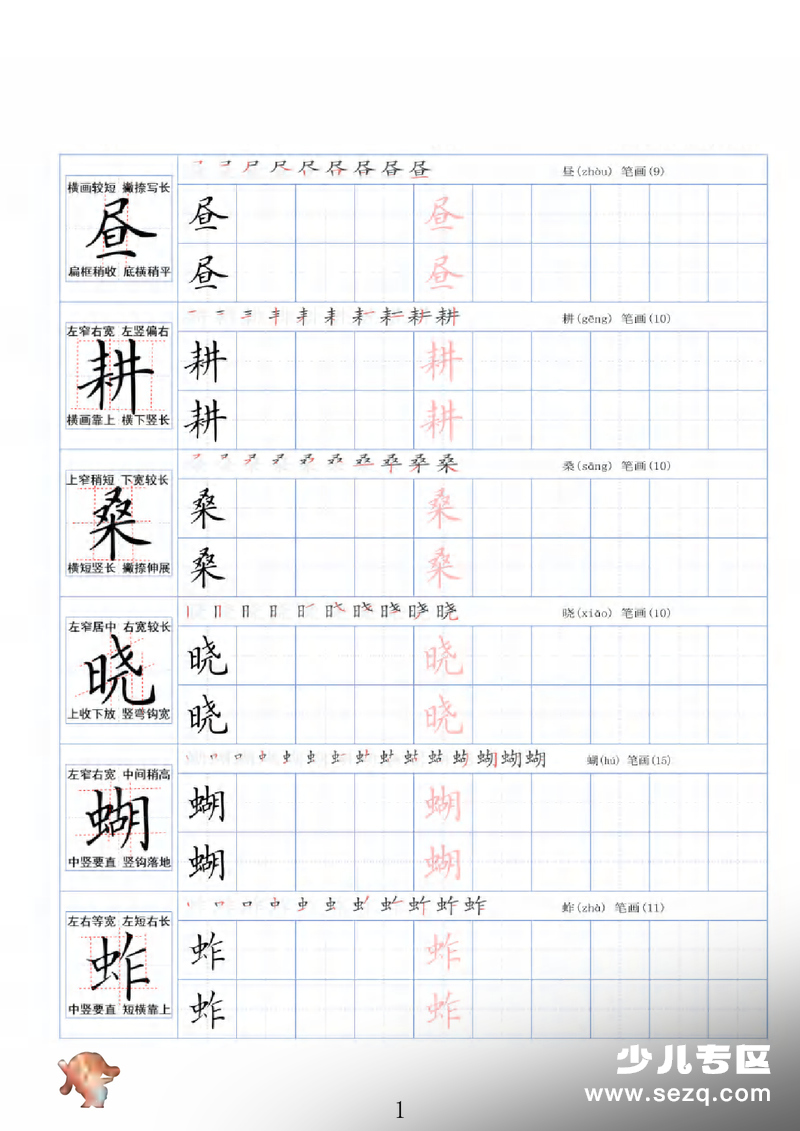 昼(zhòu) 笔画(9)
横画较短 撇捺写长
昼
昼 昼
昼 昼
扁框稍收 底横稍平
耕(gēng) 笔画(10)
左窄右宽 左竖偏右
耕
耕 耕
耕 耕
横画靠上 横下竖长
桑(sāng) 笔画(10)
上窄稍短 下宽较长
桑
桑 桑
桑 桑
横短竖长 撇捺伸展
晓(xiǎo) 笔画(10)
左窄居中 右宽较长
晓
晓 晓
晓 晓
上收下放 竖弯钩宽
蝴(hú) 笔画(15)
左窄右宽 中间稍高
蝴
蝴 蝴
蝴 蝴
中竖要直 竖钩落地
蚱(zhà) 笔画(11)
左右等宽 左短右长
蚱
蚱 蚱
蚱 蚱
中竖要直 短横靠上
少儿专区
www.sezq.com
1